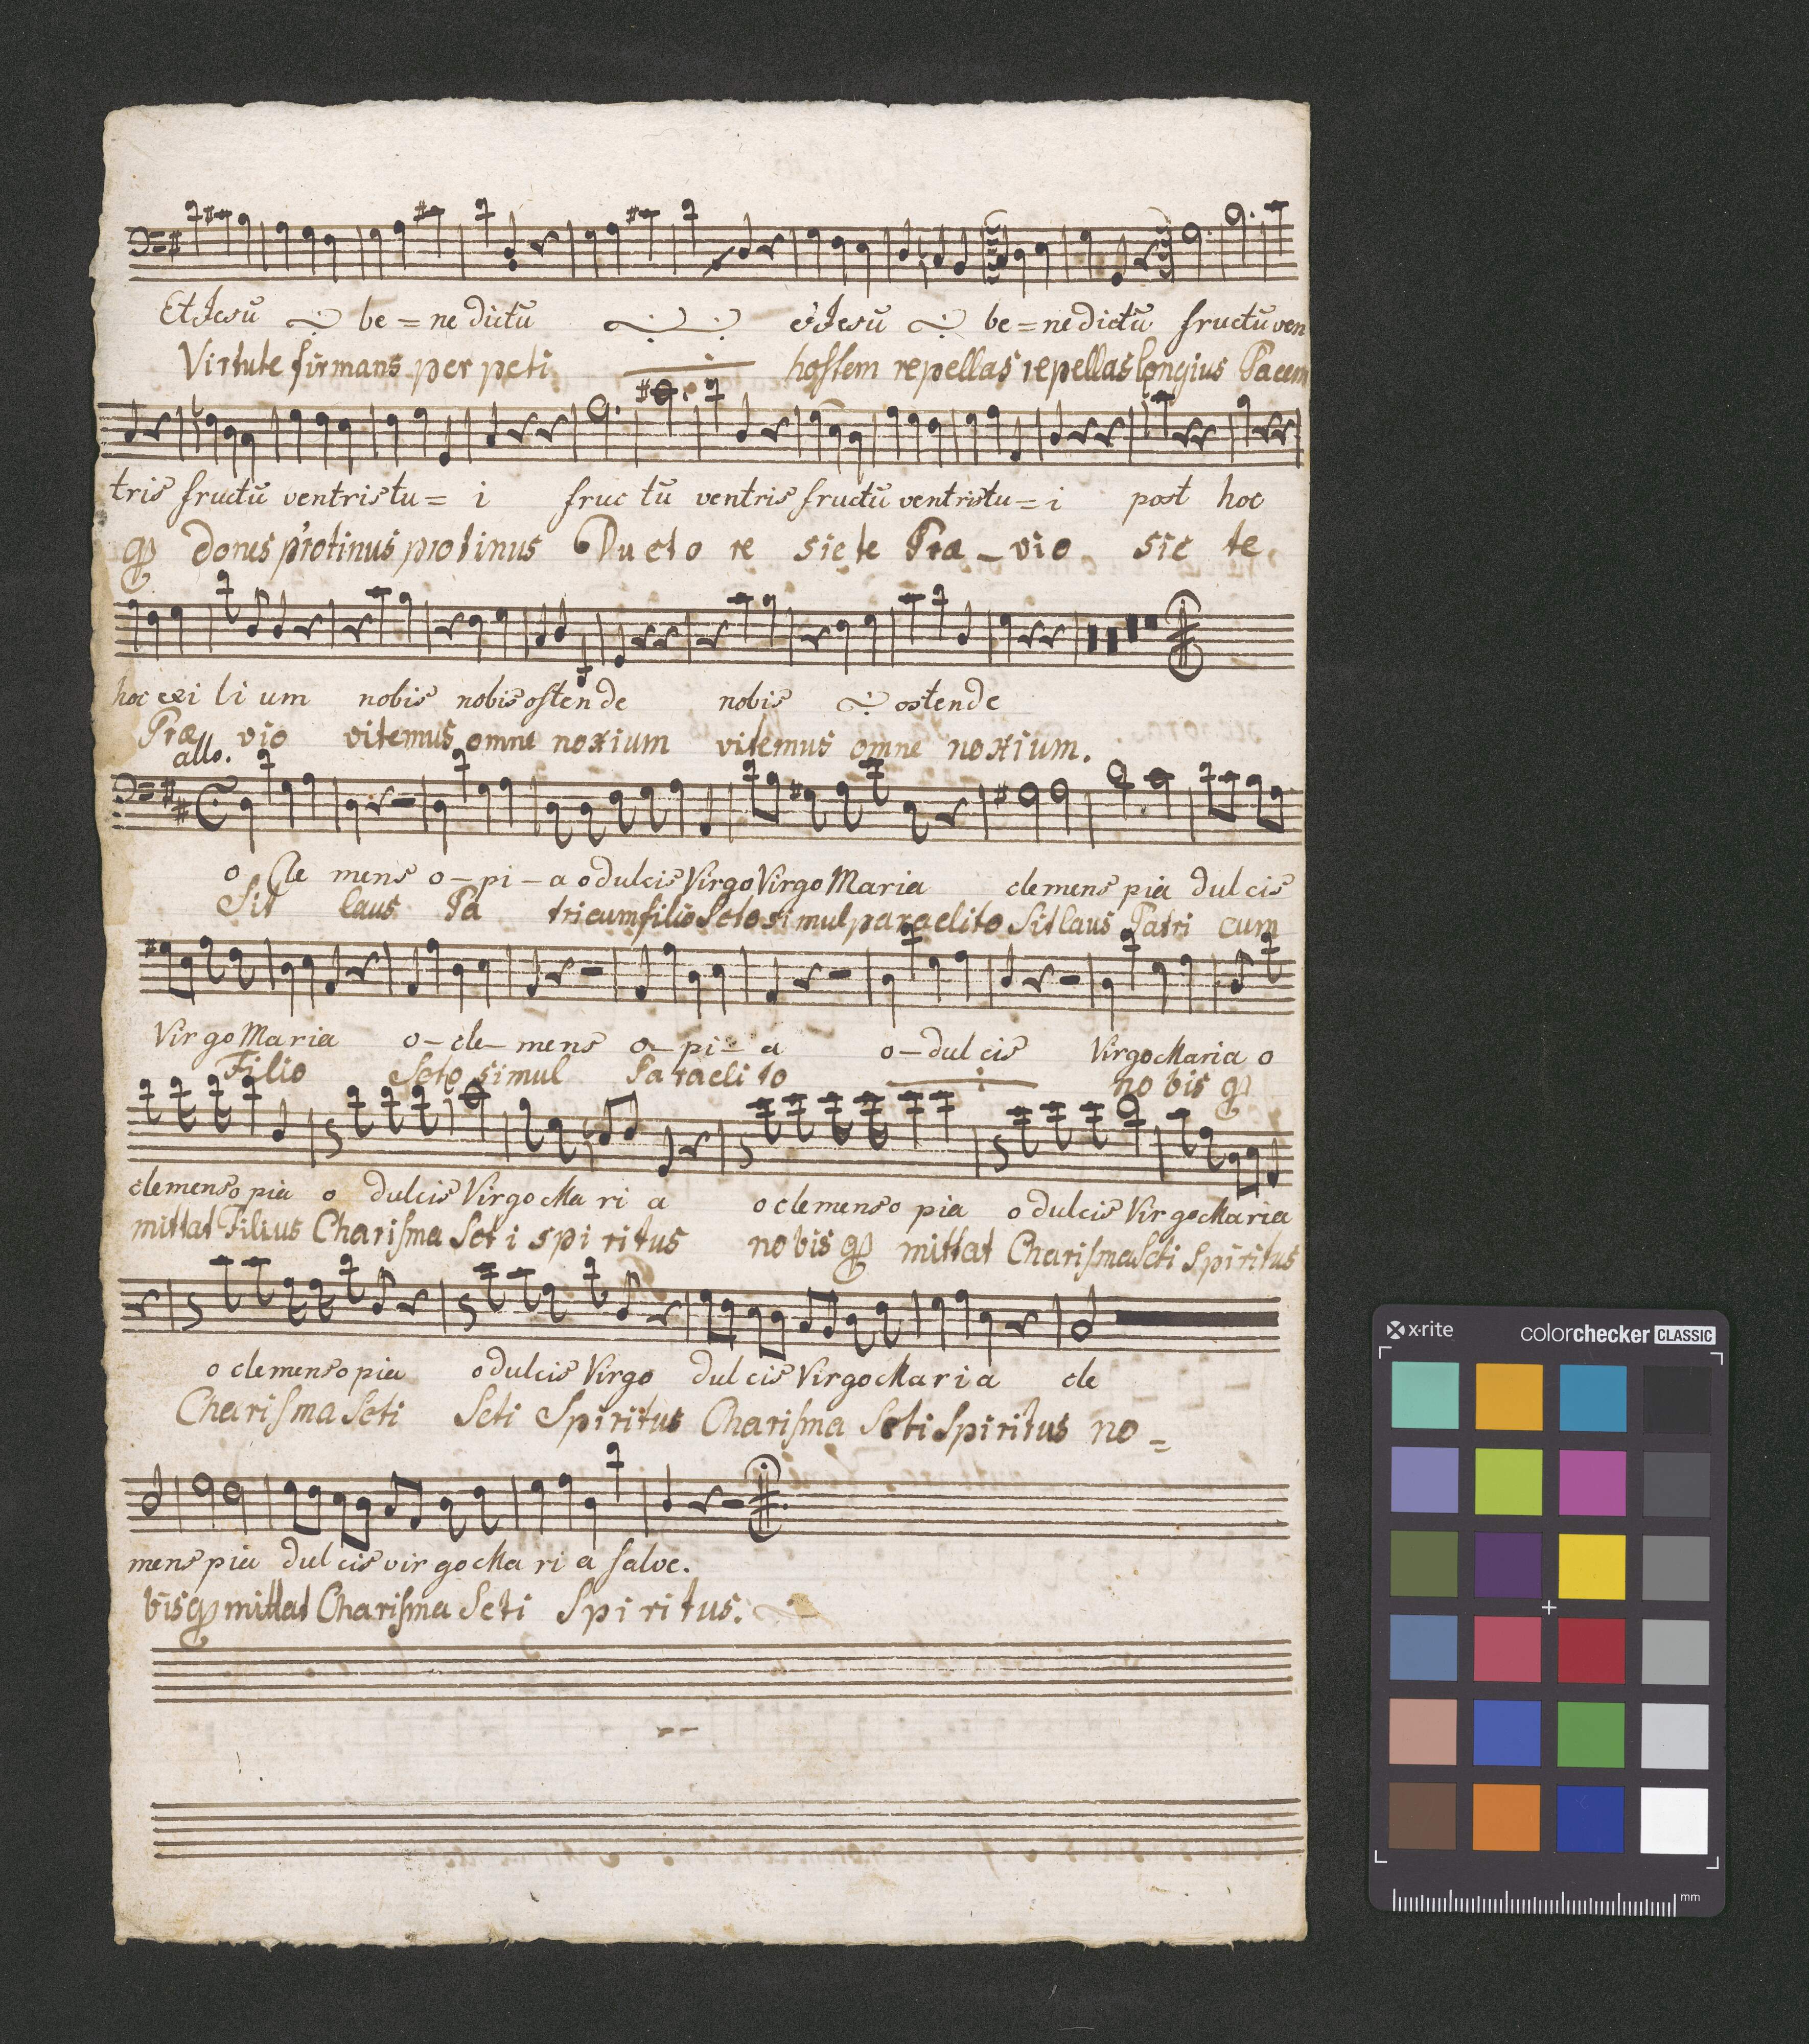 Et Jesū be=nedictū etJesū be=nedictū fructū ven
Virtute firmans per peti hoſtem repellas repellas longius Pacem
tris fructū ventris tu=i fruc tū ventris fructū ventris tu=i post hoc
qȝ dones protinus protinus Ducto re sic te Præ_vio sic te
hoc exi li um nobis nobis oſtende nobis ostende
Præ vio vitemus omne noxium vitemus omne noxium.
allo.
o Cle mens o-pi-a o dulcis Virgo Virgo Maria clemens pia dulcis
Sit laus Pa tri cum filio Scto simul paraclito Sit laus Patri cum
Virgo Maria o-cle-mens o-pi-a o-dulcis Virgo Maria o
Filio Scto simul Paracli to no bis qȝ
clemens o pia o dulcis Virgo Ma ri a o clemens o pia o dulcis Virgo Maria
mittat Filius Chariſma Scti spi ritus no bis qȝ mittat Chariſma Scti Spiritus
o clemens o pia o dulcis Virgo dulcis Virgo Maria cle
Chariſma Scti Scti Spiritus Chariſma Scti Spiritus no=
mens pia dulcis virgo Ma ri a ſalve.
bis qȝ mittat Chariſma Scti Spi ri tus.
x·rite colorchecker CLASSIC
mm